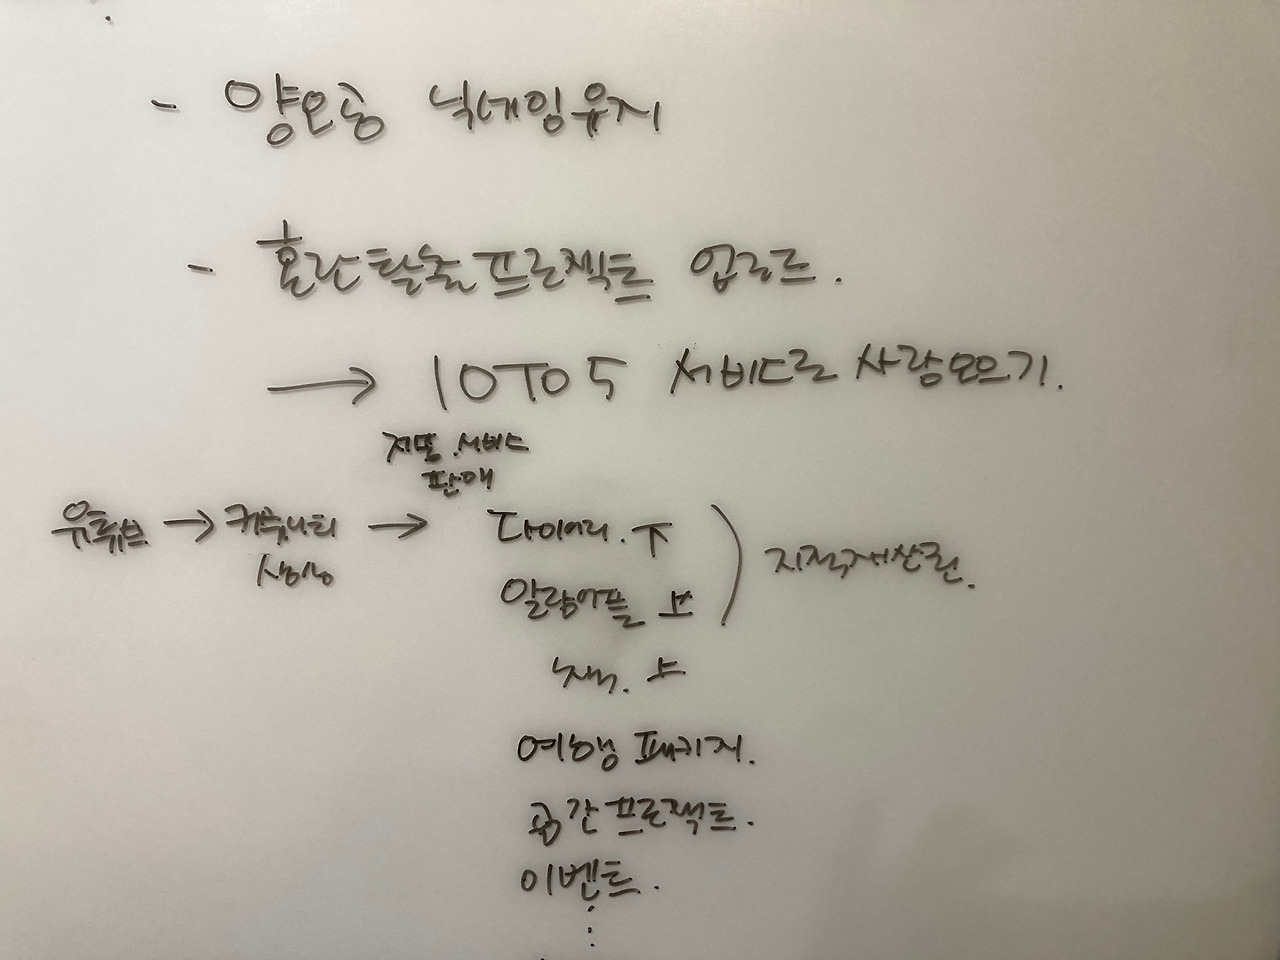 - 양오공 닉네임유지
- 혼란탈출프로젝트 업로드.
→ 10TO5 서비스로 사람모으기.
제품.서비스
판매
유튜브 → 커뮤니티 → 다이어리.
생성
알람어플
지적재산권.
여행 패키지.
공간프로젝트.
이벤트.